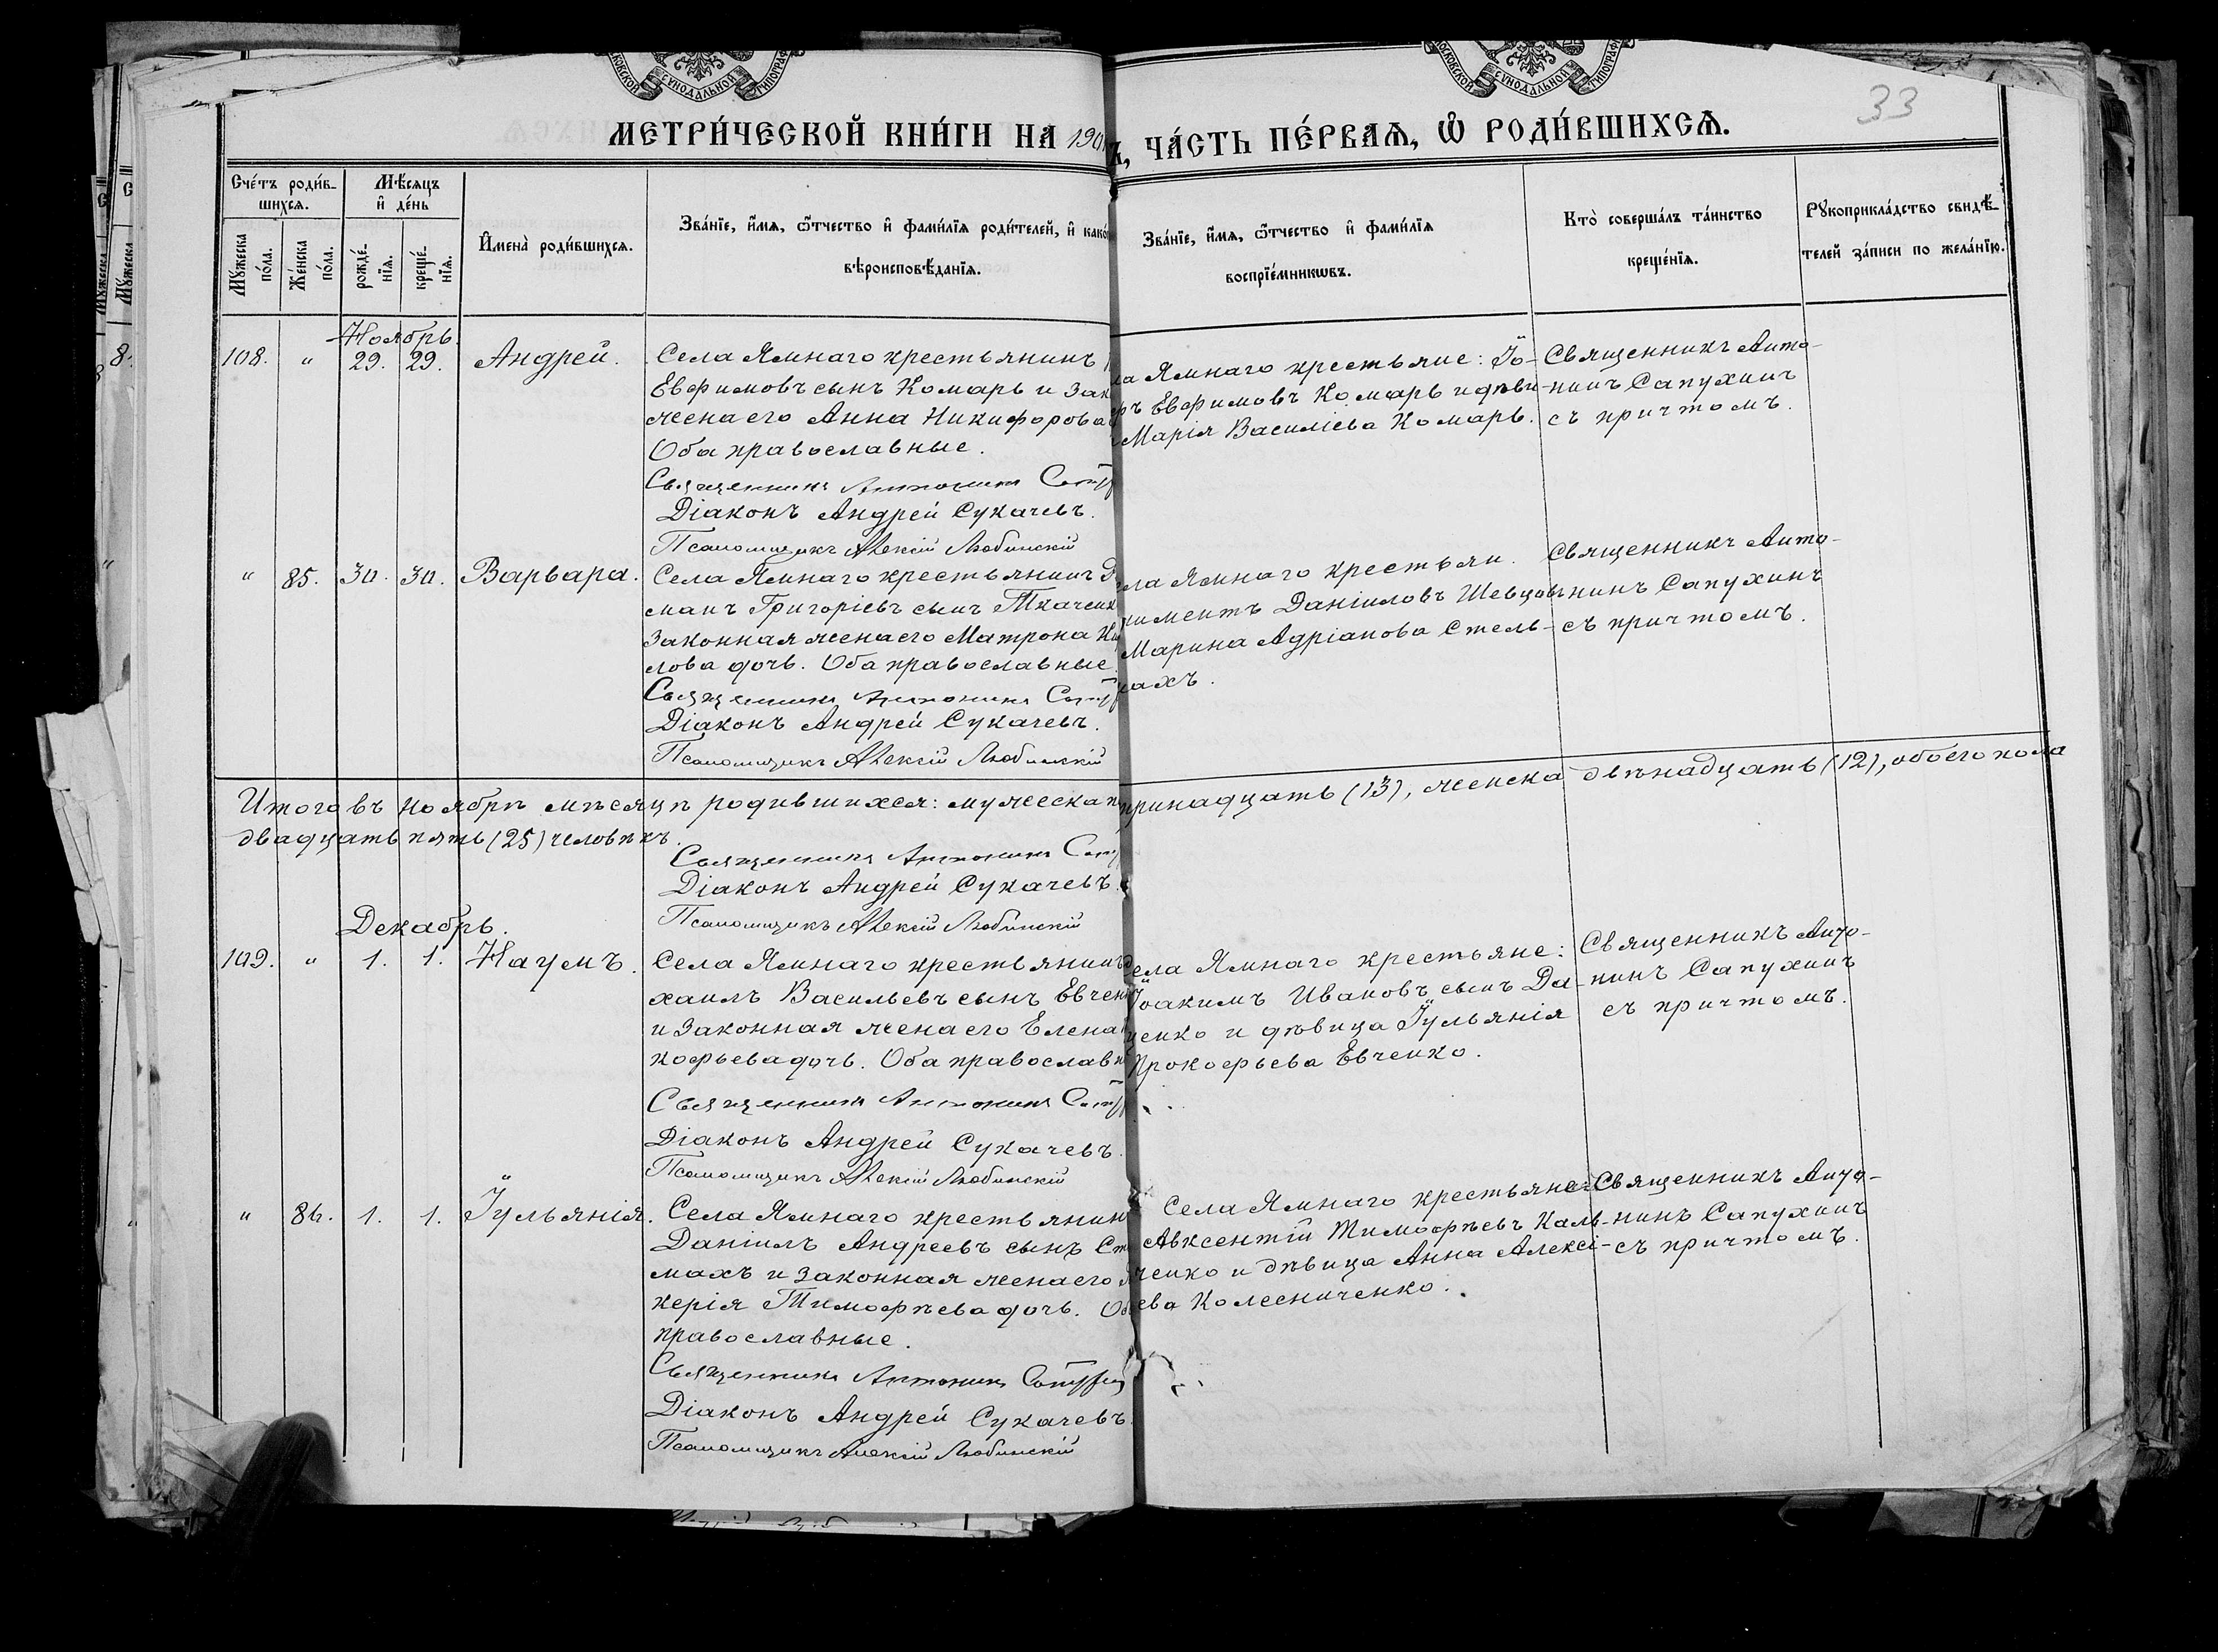 МЕТРИ́ЧЕСКОЙ КНИ́ГИ НА 190
Ъ, ЧА́СТЬ ПЕ́РВАѦ, Ѿ РОДИ́ВШИХСѦ.
33
Сче́тъ роди́в-
шихсѧ.
Мѣ́сѧцъ
и҆ де́нь
Мꙋ́жеска
по́ла.
Же́нска
по́ла.
рожде́-
нїѧ.
креще́-
нїѧ.
И҆мена̀ роди́вшихсѧ.
Зва́нїе, и҆́мѧ, ѻ҆́тчество и҆ фами́лїѧ роди́телей, и҆ како
вѣроисповѣ́данїѧ.
Зва́нїе, и҆́мѧ, ѻ҆́тчество и҆ фами́лїѧ
воспрїе́мникѡвъ.
Кто̀ соверша́лъ та́инство
креще́нїѧ.
Рꙋкоприкла́дство свидѣ́-
телей за́писи по жела́нїю.
Ноябрь.
108. " 29. 29. Андрей.
Села Ямнаго крестьянинъ
Евфимовъ сынъ Комарь и зак
жена его Анна Никифорова
Оба православные.
Священникъ Антонинъ
Діаконъ Андрей Сукачевъ.
Псаломщикъ Алексій Любинскій
ла Ямнаго крестьяне: Іо-
ръ Евфимовъ Комарь и дѣви-
Марія Василіева Комарь.
Священникъ Анто-
нинъ Сапухинъ
съ причтомъ.
" 85. 30. 30. Варвара.
Села Ямнаго крестьянинъ
манъ Григоріевъ сынъ Ткаченк
законная жена его Матрона
лова дочь. Оба православные.
Священникъ Антонинъ
Діаконъ Андрей Сукачевъ.
Псаломщикъ Алексій Любинскій
ела Ямнаго крестьян.
иментъ Даніиловъ Шевцовъ
Марина Адріанова Стель-
махъ.
Священникъ Анто-
нинъ Сапухинъ
съ причтомъ.
Итого въ ноябрѣ мѣсяцѣ родившихся: мужеска п
тринадцать (13), женска двѣнадцать (12), обоего пола
двадцать пять (25) человѣкъ.
Священникъ Антонинъ
Діаконъ Андрей Сукачевъ.
Псаломщикъ Алексій Любинскій
Декабрь.
109. " 1. 1. Наумъ.
Села Ямнаго крестьянинъ
хаилъ Васильевъ сынъ Евчен
и законная жена его Елена
кофьева дочь. Оба православн
Священникъ Антонинъ
Діаконъ Андрей Сукачевъ.
Псаломщикъ Алексій Любинскій
Села Ямнаго крестьяне:
Іоакимъ Ивановъ сынъ Да-
ценко и дѣвица Іульянія
Прокофьева Евченко.
Священникъ Анто-
нинъ Сапухинъ
съ причтомъ.
" 86. 1. 1. Іульянія.
Села Ямнаго крестьянин
Даніилъ Андреевъ сынъ Ст
махъ и законная жена его
керія Тимофѣева дочь. Об
православные.
Священникъ Антонинъ
Діаконъ Андрей Сукачевъ
Псаломщикъ Алексій Любинскій
Села Ямнаго крестьяне:
Авксентій Тимофѣевъ Каль-
ченко и дѣвица Анна Алексі-
ева Колесниченко.
Священникъ Анто-
нинъ Сапухинъ
съ причтомъ.